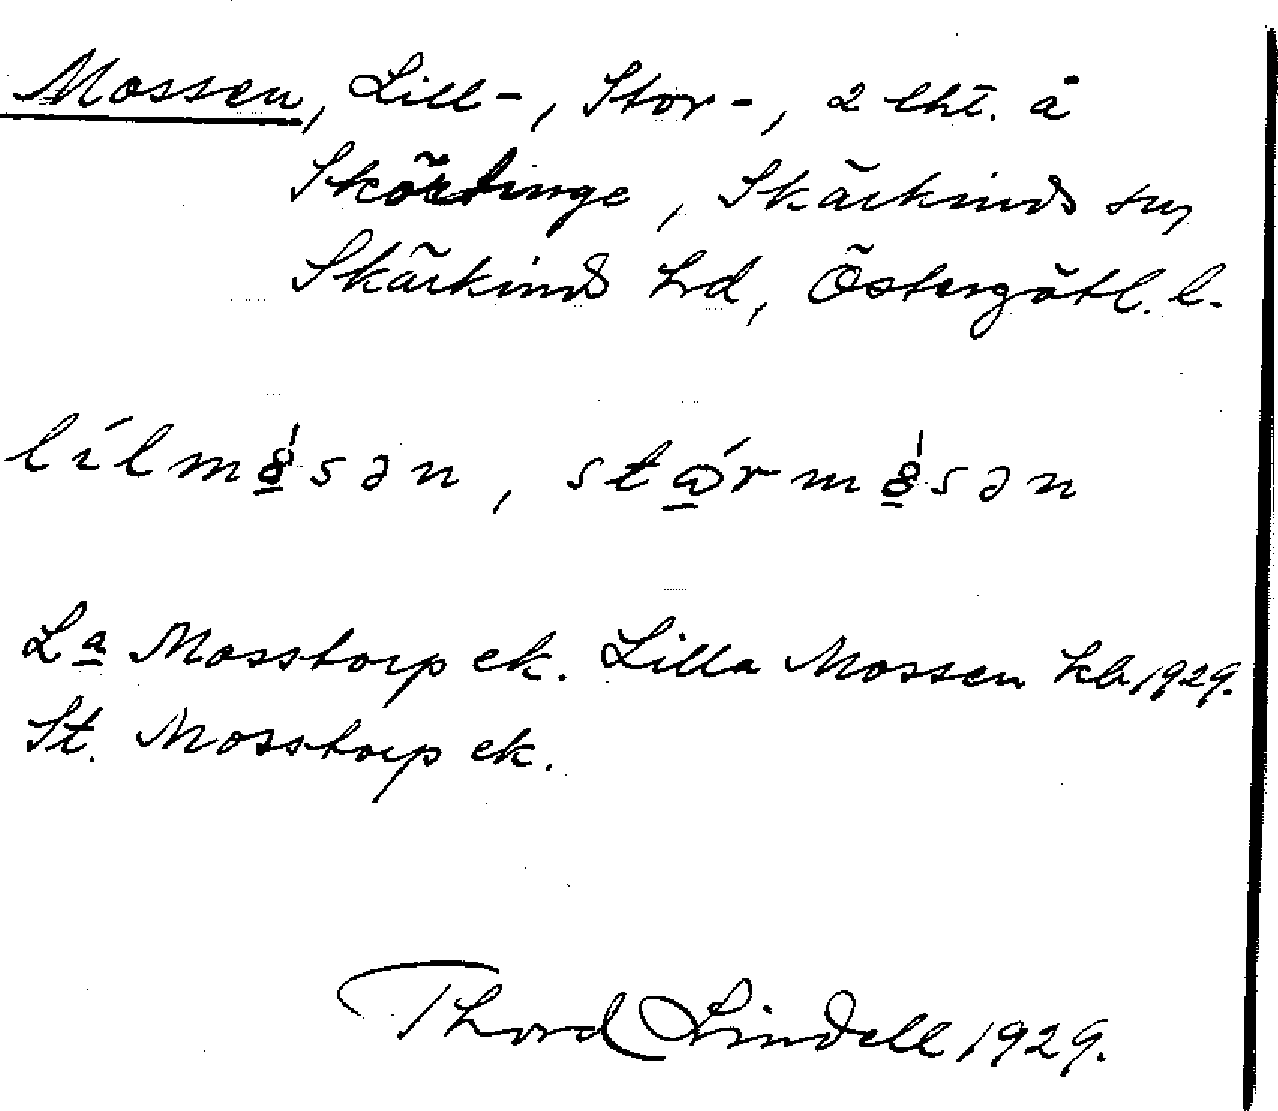 Mossen, Lill-, Stor-, 2 lht. å
Skörtinge, Skärkinds sn,
Skärkinds hd, Östergötl. l.
lílmo̲sən, stár mo̲sən
La Mosstorp ek. Lilla Mossen kb. 1929.
St. Mosstorp ek.
Thord Lindell 1929.